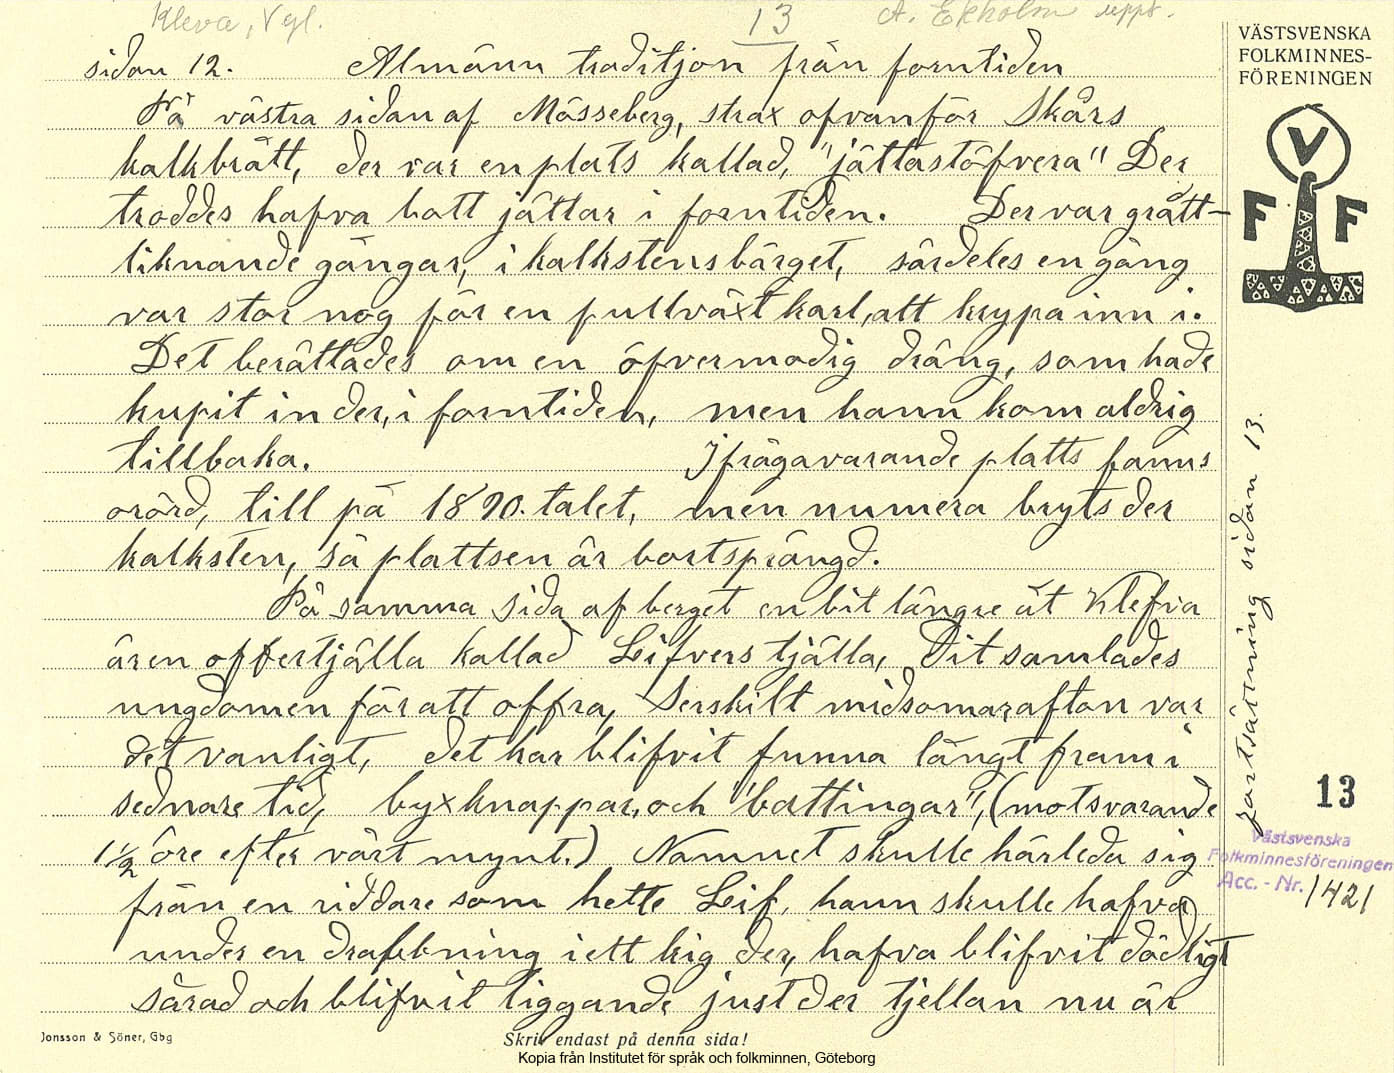 Kleva, Vgl.
13
A. Ekholm uppt.
VÄSTSVENSKA
FOLKMINNES-
FÖRENINGEN
V
F F
sidan 12. Almänn traditjon från forntiden
På västra sidan af Mösseberg, strax ofvanför Skårs
kalkbrått, der var en plats kallad, "jättastöfvera" Der
troddes hafva bott jättar i forntiden. Der var grått-
liknande gångar, i kalkstensbärget, särdeles en gång
var stor nog för en fullväxt karl, att krypa inn i.
Det berättades om en öfvermodig dräng, som hade
kupit in der, i forntiden, men hann kom aldrig
tillbaka. Ifrågavarande platts fanns
orörd, till på 1890. talet, men numera bryts der
kalksten, så plattsen är bortsprängd.
På samma sida af berget en bit längre åt Klefva
är en offertjälla kallad Leifvers tjälla, Dit samlades
ungdomen för att offra, Serskilt midsomarafton var
det vanligt, det har blifvit funna långt fram i
sednare tid, byxknappar, och "battingar", (motsvarande
1 1/2 öre efter vårt mynt.) Namnet skulle härleda sig
från en riddare som hette Leif, hann skulle hafva
under en drabbning i ett krig der, hafva blifvit dödligt
sårad och blifvit liggande just der tjellan nu är
fortsättning sidan 13.
13
Västsvenska
Folkminnesföreningen
Acc. - Nr. 1421
Jonsson & Söner, Gbg
Skriv endast på denna sida!
Kopia från Institutet för språk och folkminnen, Göteborg